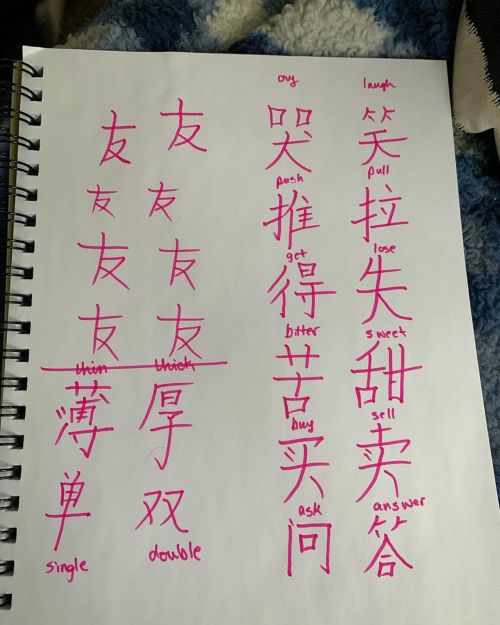 友 友
友 友
友 友
友 友
thin thick
薄 厚
单 双
single double
cry laugh
哭 笑
push pull
推 拉
get lose
得 失
bitter sweet
苦 甜
buy sell
买 卖
ask answer
问 答